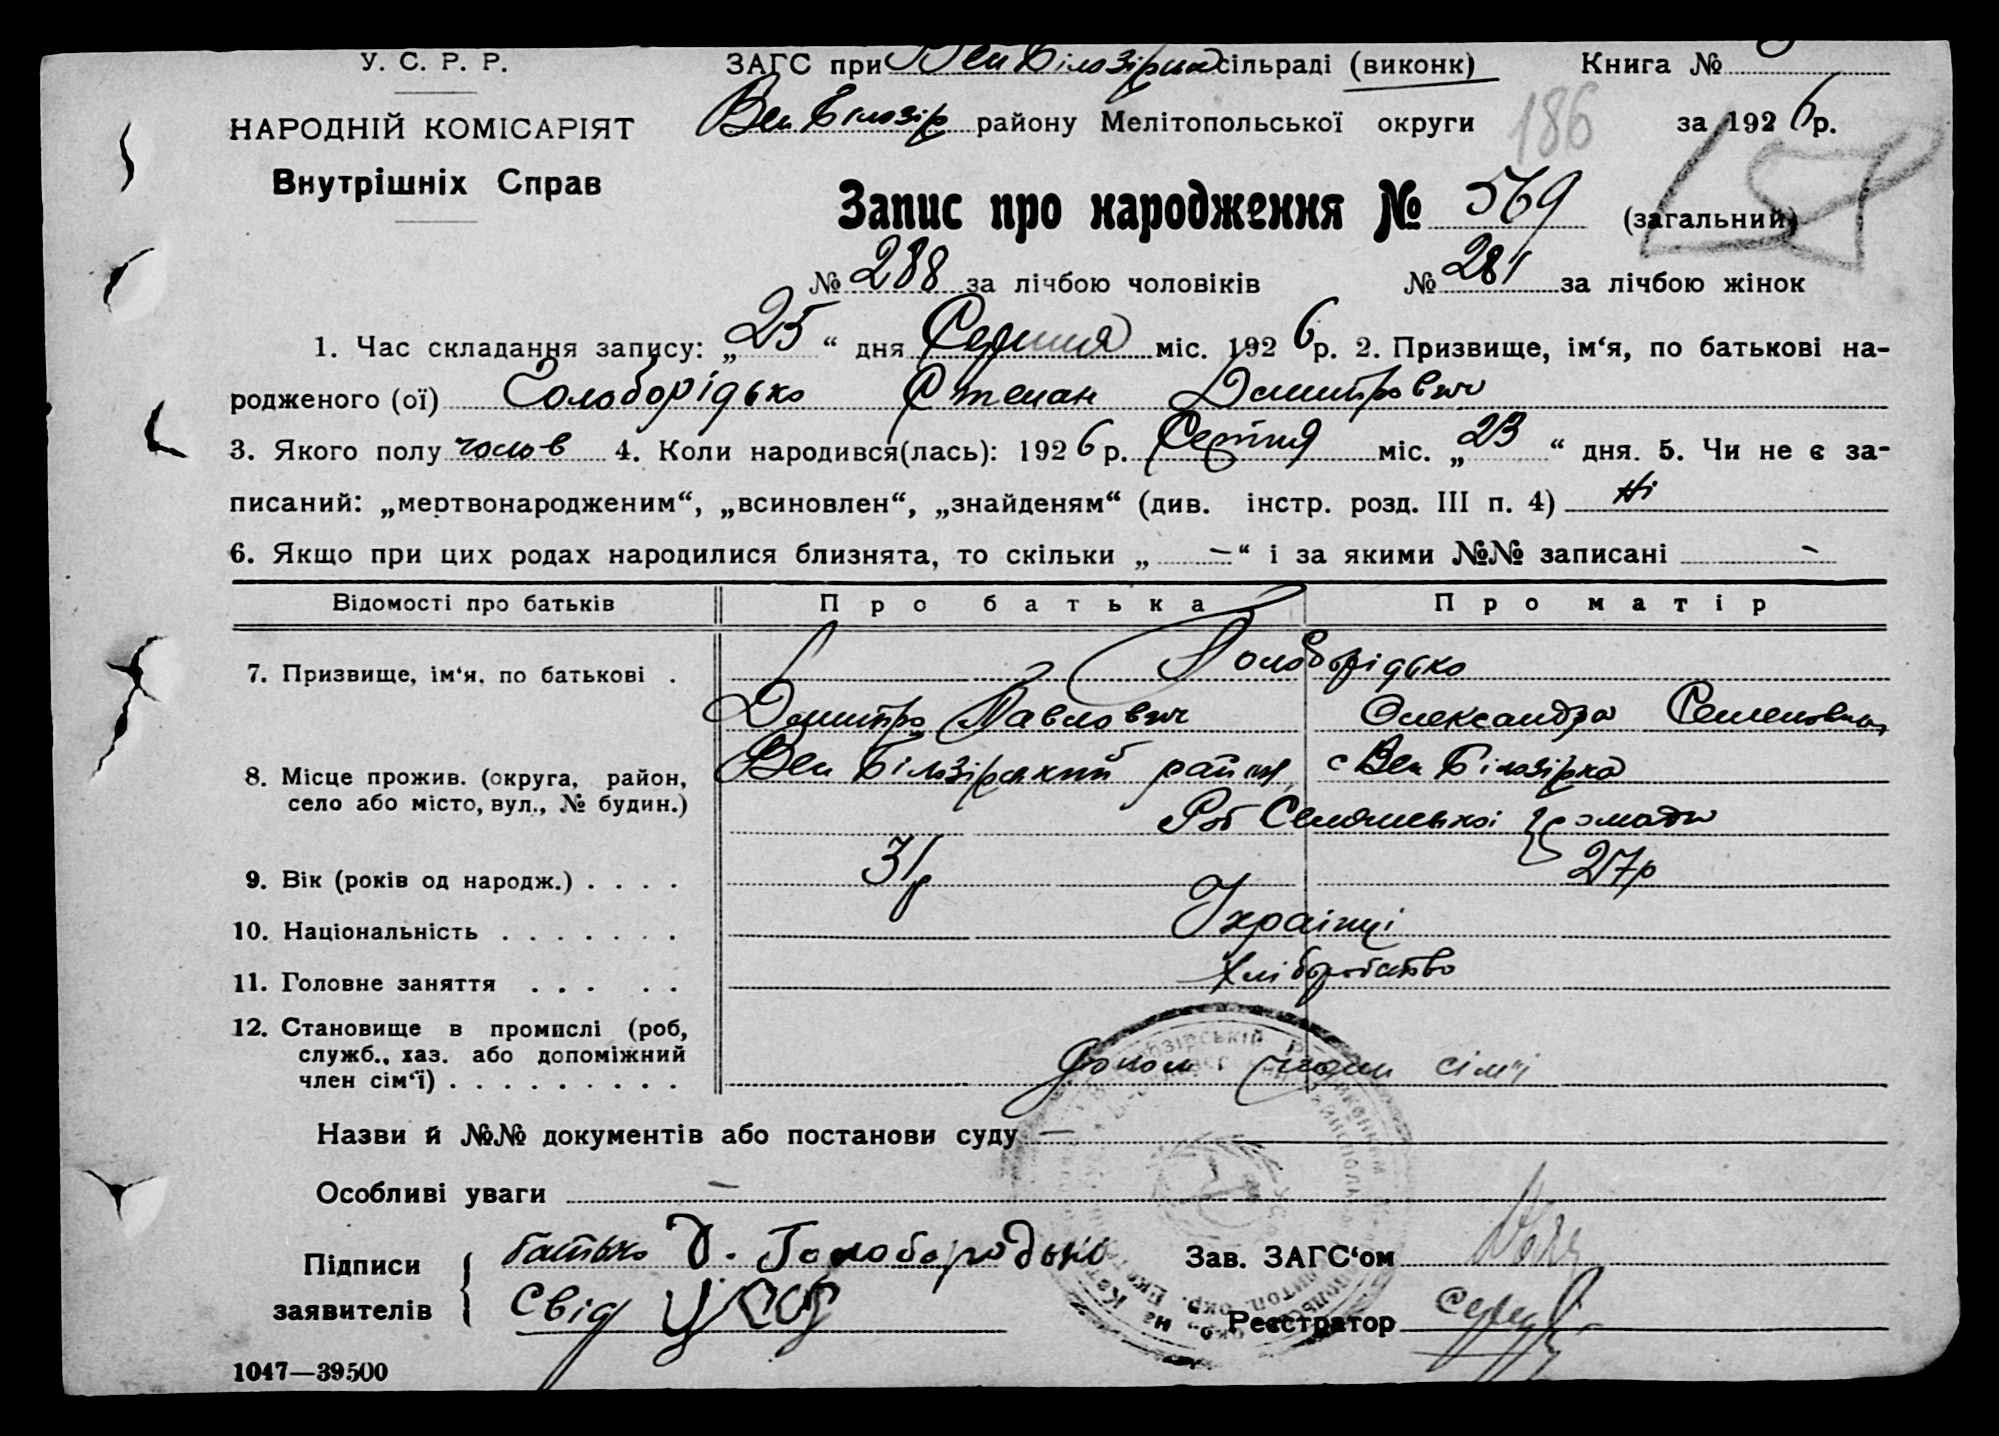 У. С. Р. Р.
НАРОДНІЙ КОМІСАРІЯТ
Внутрішніх Справ
ЗАГС при Вел Білозірка сільраді (виконк)
Книга №
Вел Білозір району Мелітопольської округи
за 1926 р.
186
Запис про народження № 569 (загальний)
№ 288 за лічбою чоловіків № 281 за лічбою жінок
1. Час складання запису: „25“ дня Серпня міс. 1926 р. 2. Призвище, ім‘я, по батькові на-
родженого (ої) Голоборідько Степан Дмитрович
3. Якого полу чолов 4. Коли народився(лась): 1926 р. Серпня міс. „23“ дня. 5. Чи не є за-
писаний: „мертвонародженим“, „всиновлен“, „знайденям“ (див. інстр. розд. III п. 4) Ні
6. Якщо при цих родах народилися близнята, то скільки „ — “ і за якими №№ записані —
Відомості про батьків Про батька Про матір
7. Призвище, ім‘я, по батькові . Голоборідько
Дмитро Павлович Олександра Семеновна
8. Місце прожив. (округа, район, Вел Білозірський район, с Вел Білозірка
село або місто, вул., № будин.) Роб Селянської громади
9. Вік (років од народж.) . . . . 31р 27р
10. Національність . . . . . . . Українці
11. Головне заняття . . . . . Хліборобство
12. Становище в промислі (роб,
служб., хаз. або допоміжний
член сім‘ї) . . . . . . . . . допом члени сім'ї
Назви й №№ документів або постанови суду —
Особливі уваги —
Підписи
заявителів
батько Д. Голобородько
Свід
Зав. ЗАГС‘ом
Реєстратор
1047—39500